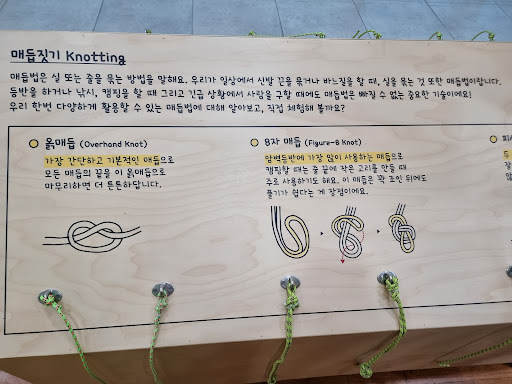 매듭짓기 Knotting
매듭법은 실 또는 줄을 묶는 방법을 말해요. 우리가 일상에서 신발 끈을 묶거나 바느질을 할 때, 실을 묶는 것 또한 매듭법이랍니다.
등반을 하거나 낚시, 캠핑을 할 때 그리고 긴급 상황에서 사람을 구할 때에도 매듭법은 빠질 수 없는 중요한 기술이에요!
우리 한번 다양하게 활용할 수 있는 매듭법에 대해 알아보고, 직접 체험해 볼까요?
옭매듭 (Overhand Knot)
가장 간단하고 기본적인 매듭으로
모든 매듭의 끝을 이 옭매듭으로
마무리하면 더 튼튼하답니다.
8자 매듭 (Figure-8 Knot)
암벽등반에 가장 많이 사용하는 매듭으로
캠핑할 때는 줄 끝에 작은 고리를 만들 때
주로 사용하기도 해요. 이 매듭은 꽉 조인 뒤에도
풀기가 쉽다는 게 장점이에요.